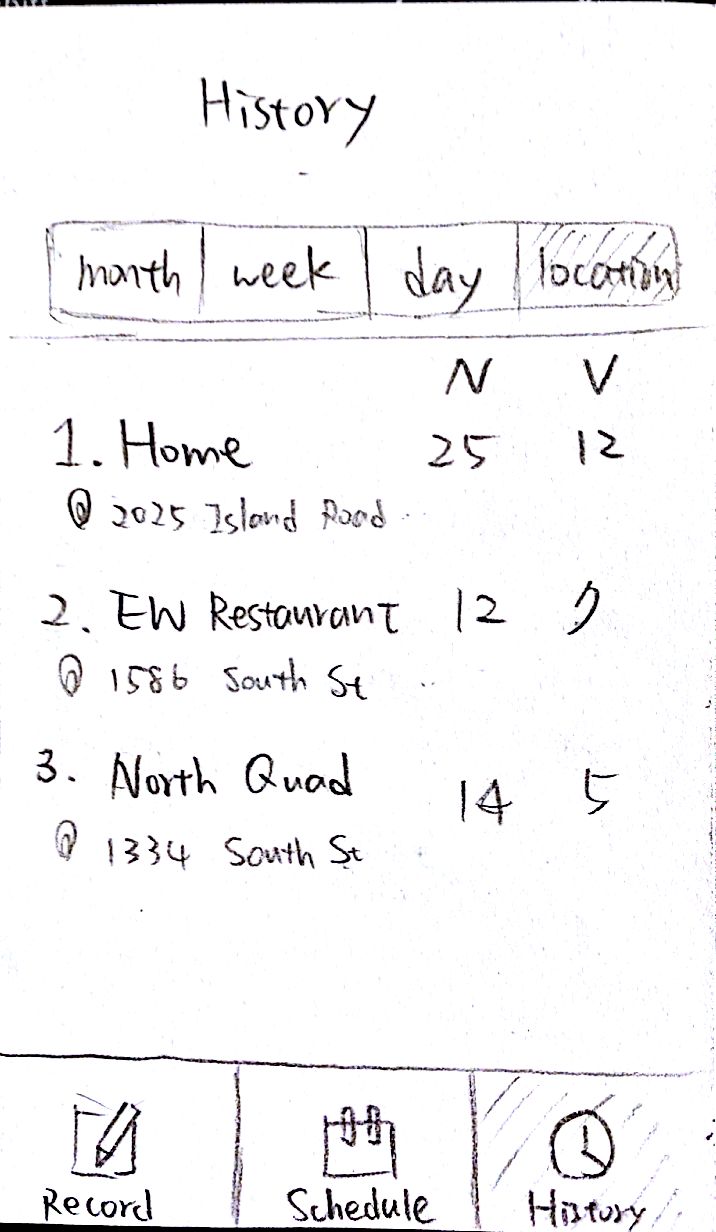 History
month week day location
N V
1. Home 25 12
2025 Island Road
2. EW Restaurant 12
1586 South St
3. North Quad 14 5
1334 South St
Record Schedule History